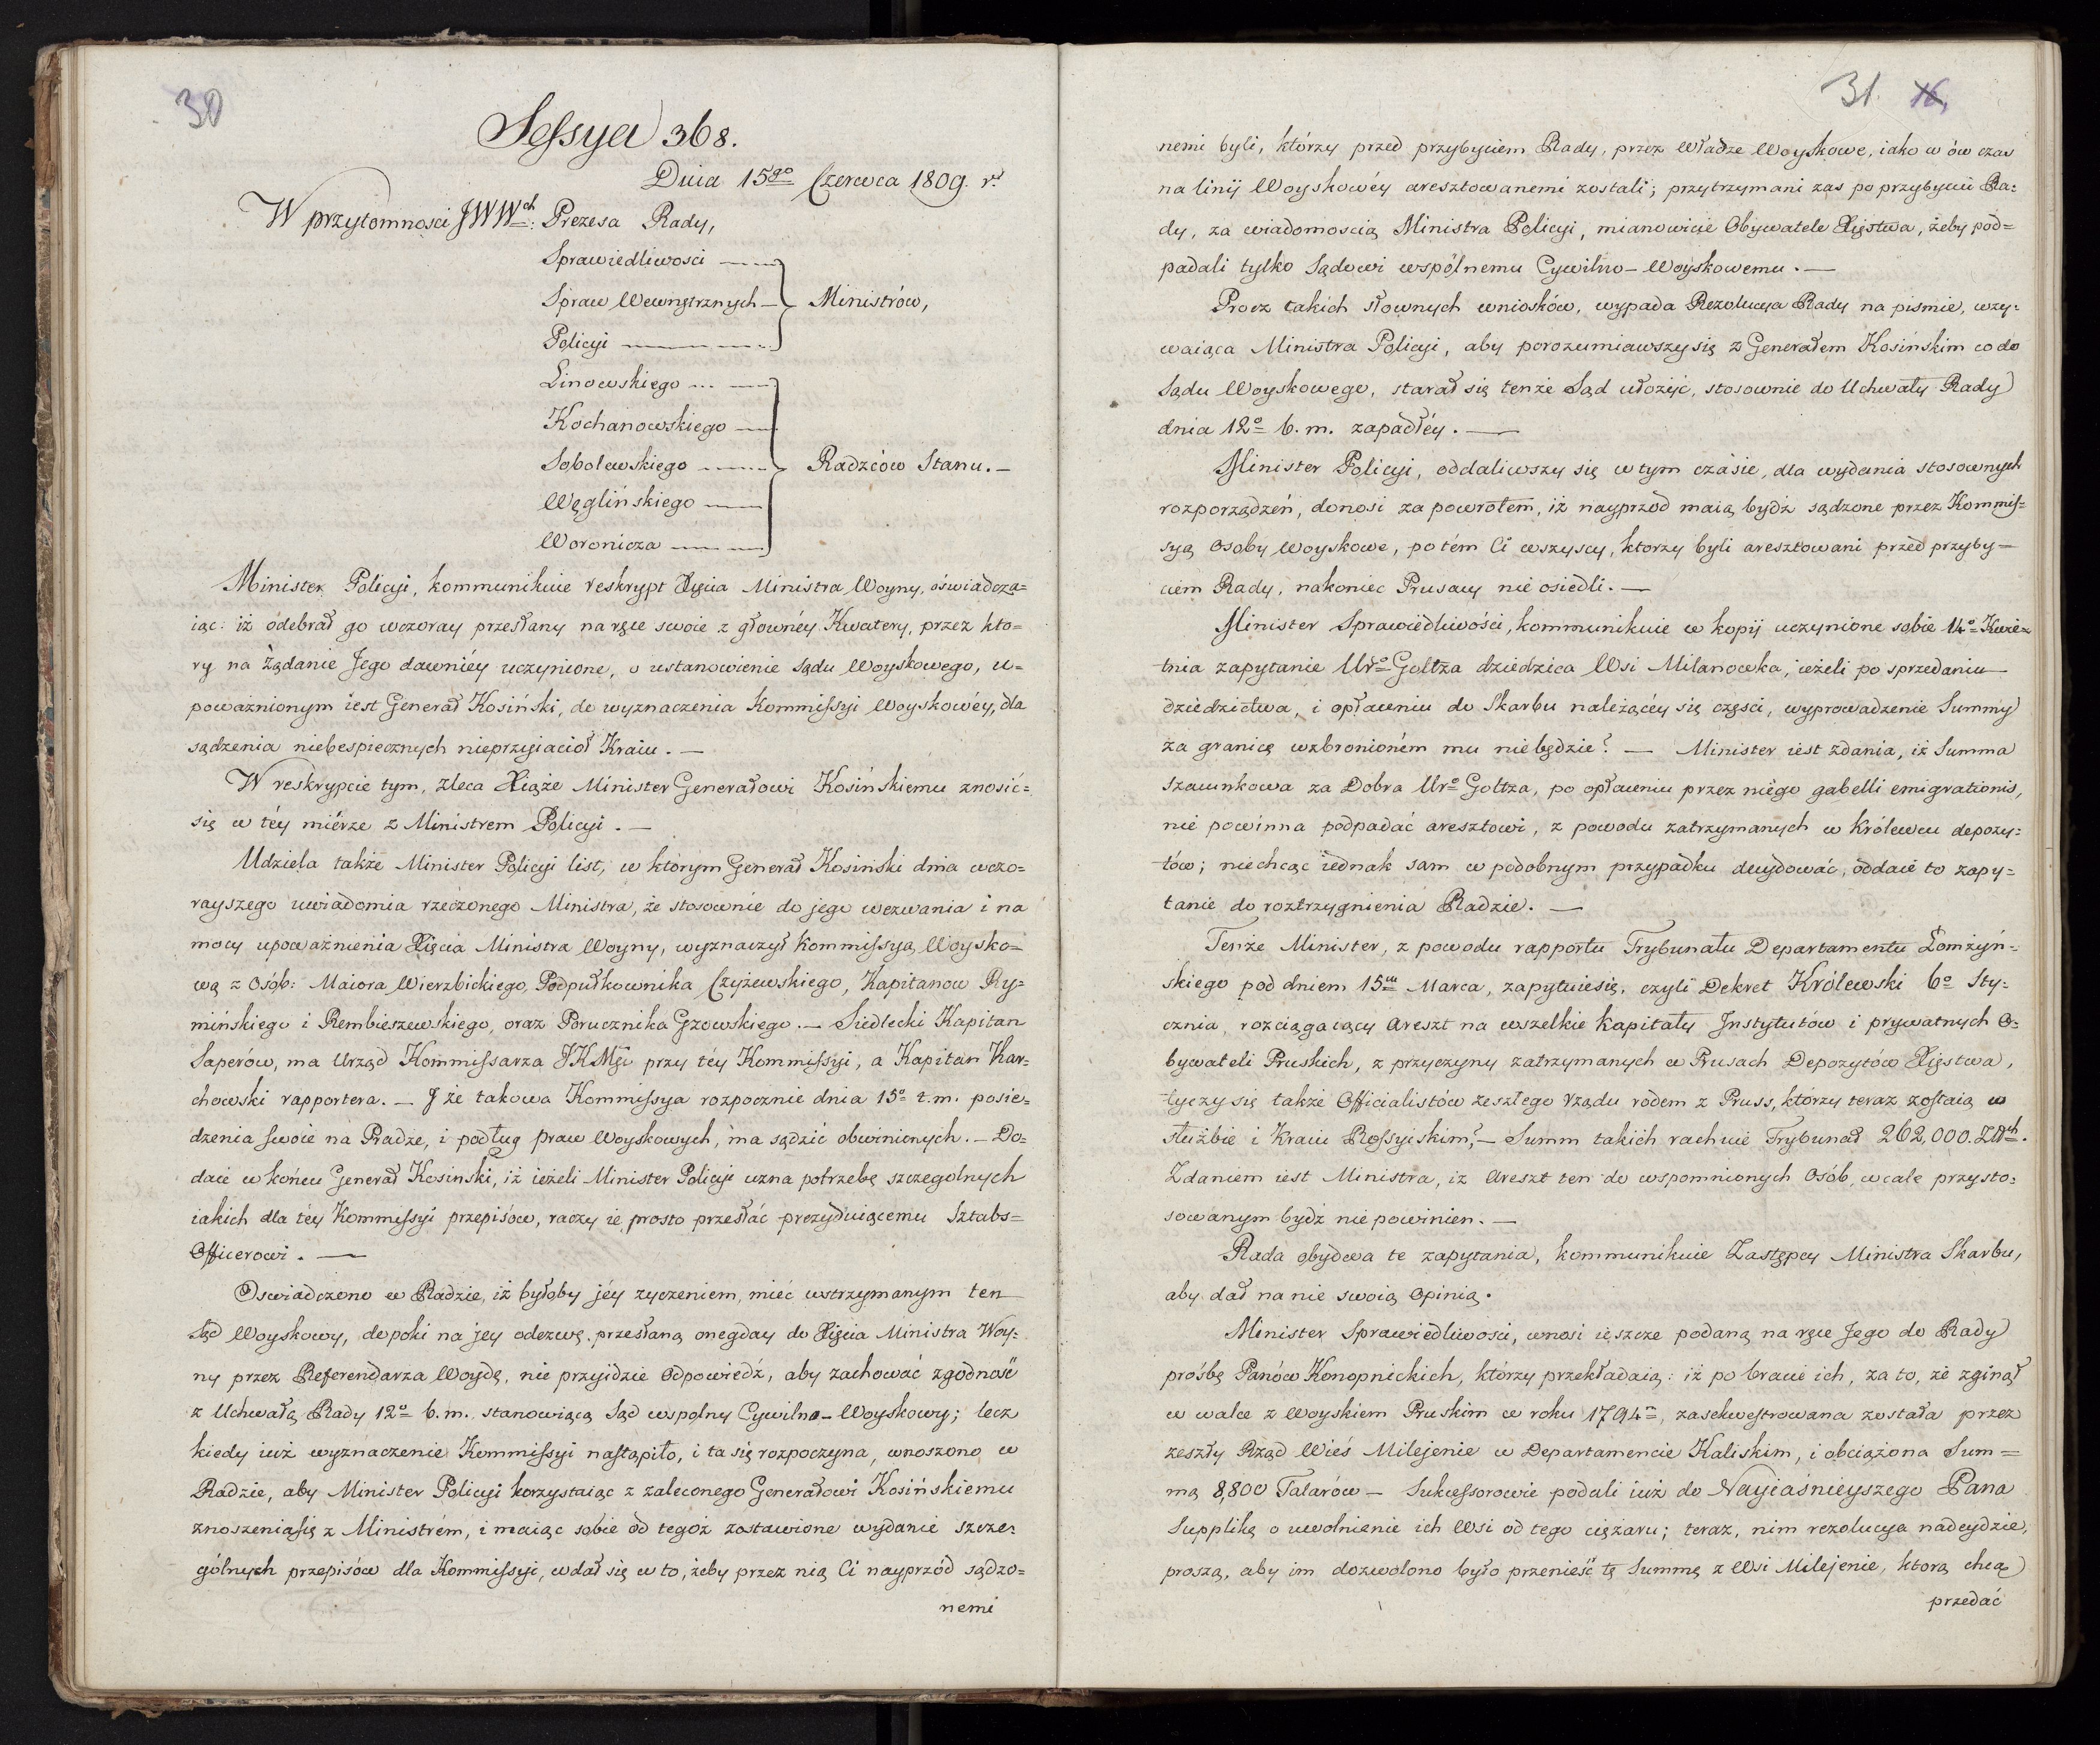 30
Sessya 368.
Dnia 15go Czerwca 1809. r.
W przytomności JWWch: Prezesa Rady,
Sprawiedliwości
Spraw Wewnętrznych — Ministrów,
Policyi
Linowskiego
Kochanowskiego
Sobolewskiego — Radzców Stanu. —
Węglińskiego
Woronicza
Minister Policyi, kommunikuie reskrypt Xięcia Ministra Woyny, oświadcza=
iąc: iż odebrał go wczoray przesłany na ręce swoie z głównéy Kwatery, przez kto=
ry na żądanie Jego dawniéy uczynione, o ustanowienie Sądu Woyskowego, u=
poważnionym iest Generał Kosiński, do wyznaczenia Kommissyi Woyskowéy, dla
sądzenia niebespiecznych nieprzyiaciół Kraiu. —
W reskrypcie tym, zleca Xiąże Minister Generałowi Kosińskiemu znosić=
się w téy miérze z Ministrem Policyi. —
Udziela także Minister Policyi list, w którym Generał Kosiński dnia wczo=
rayszego uwiadomia rzeczonego Ministra, że stosownie do jego wezwania i na
mocy upoważnienia Xięcia Ministra Woyny, wyznaczył Kommissyą Woysko=
wą z Osób: Maiora Wierzbickiego, Podpułkownika Czyżewskiego, Kapitanow Ry=
mińskiego i Rembieszewskiego, oraz Porucznika Gzowskiego. — Siedlecki Kapitan
Saperów, ma Urząd Kommissarza JKMci przy téy Kommissyi, a Kapitan Kar=
chowski rapportera. — I że takowa Kommissya rozpocznie dnia 15o t. m. posie=
dzenia swoie na Pradze, i podług praw Woyskowych, ma sądzić obwinionych. — Do=
daie w końcu Generał Kosinski, iż ieżeli Minister Policyi uzna potrzebę szczegolnych
iakich dla téy Kommissyi przepisów, raczy ie prosto przesłać prezyduiącemu Sztabs=
Officerowi. —
Oswiadczono w Radzie, iż byłoby jéy zyczeniem, mieć wstrzymanym ten
Sąd Woyskowy, dopoki na jey odezwę, przesłaną onegday do Xięcia Ministra Woy=
ny przez Referendarza Woydę, nie przyidzie Odpowiedź, aby zachować zgodność
z Uchwałą Rady 12o b. m. stanowiącą Sąd wspolny Cywilno-Woyskowy; lecz
kiedy iuż wyznaczenie Kommissyi nastąpiło, i ta się rozpoczyna, wnoszono w
Radzie, aby Minister Policyi korzystaiąc z zaleconego Generałowi Kosińskiemu
znoszenia się z Ministrém, i maiąc sobie od tegoż zostawione wydanie szcze=
gólnych przepisów dla Kommissyi, wdał się w to, żeby przez nią Ci nayprzód sądzo=
nemi
31. 16,
nemi byli, którzy przed przybyciem Rady, przez Władze Woyskowe, iako w ów czas
na linij Woyskowéy aresztowanemi zostali; przytrzymani zas po przybyciu Ra=
dy, za wiadomoscią Ministra Policyi, mianowicie Obywatele Xięstwa, żeby pod=
padali tylko Sądowi wspólnemu Cywilno-Woyskowemu. —
Procz takich słownych wniosków, wypada Rezolucya Rady na pismie, wzy=
waiąca Ministra Policyi, aby porozumiawszy się z Generałem Kosińskim co do
Sądu Woyskowego, starał się tenże Sąd ułożyć, stosownie do Uchwały Rady
dnia 12o b. m. zapadłéy. —
Minister Policyi, oddaliwszy się w tym czasie, dla wydania stosownych
rozporządzeń, donosi za powrotem, iż nayprzod maią bydź sądzone przez Kommis=
syą Osoby Woyskowe, po tém Ci wszyscy, ktorzy byli aresztowani przed przyby=
ciem Rady, nakoniec Prusacy nie osiedli. —
Minister Sprawiedliwości, kommunikuie w kopij uczynione sobie 14o Kwie=
tnia zapytanie Uro Goltza dziedzica Wsi Milanowka, ieżeli po sprzedaniu
dziedzictwa, i opłaceniu do Skarbu należącéy się części, wyprowadzenie Summy
za granicę wzbronioném mu nie będzie? — Minister iest zdania, iż Summa
szacunkowa za Dobra Uro Goltza, po opłaceniu przez niego gabelli emigrationis,
nie powinna podpadać aresztowi, z powodu zatrzymanych w Królewcu depozy=
tów; niechcąc iednak sam w podobnym przypadku decydować, oddaie to zapy=
tanie do roztrzygnienia Radzie. —
Tenże Minister, z powodu rapportu Trybunału Departamentu Łomżyń=
skiego pod dniem 15m Marca, zapytuie się, czyli Dekret Królewski 6o Sty=
cznia, rozciągaiący Areszt na wszelkie kapitały Instytutów i prywatnych O=
bywateli Pruskich, z przyczyny zatrzymanych w Prusach Depozytów Xięstwa,
tyczy się także Officialistów zeszłego rządu rodem z Pruss, którzy teraz zostaią w
służbie i Kraiu Rossyiskim? — Summ takich rachuie Trybunał 262,000. Złch.
Zdaniem iest Ministra, iz Areszt ten do wspomnionych Osób, wcale przysto=
sowanym bydź nie powinien. —
Rada obydwa te zapytania, kommunikuie Zastępcy Ministra Skarbu,
aby dał na nie swoią Opinią.
Minister Sprawiedliwosci, wnosi ieszcze podaną na ręce Jego do Rady
prośbę Panów Konopnickich, którzy przekładaią: iż po bracie ich, za to, że zginął
w walce z Woyskiem Pruskim w roku 1794m, zasekwestrowana została przez
zeszły Rząd Wieś Milejenie w Departamencie Kaliskim, i obciążona Sum=
mą 8,800 Talarów — Sukcessorowie podali iuż do Nayiaśnieyszego Pana
Supplikę o uwolnienie ich Wsi od tego ciężaru; teraz, nim rezolucya nadeydzie,
proszą, aby im dozwolono było przenieść tę Summę z Wsi Milejenie, ktorą chcą
przedać